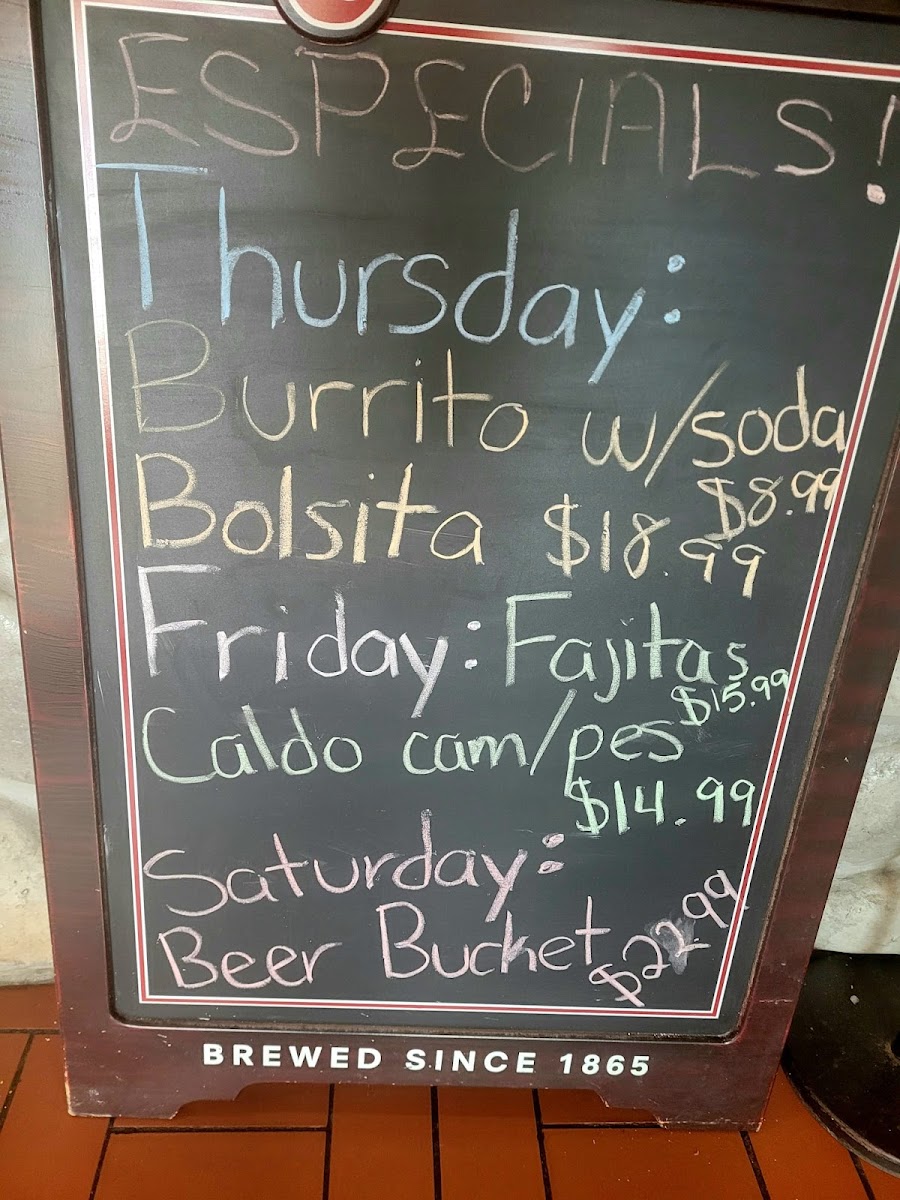 ESPECIALS!
Thursday:
Burrito w/soda
$8.99
Bolsita $18.99
Friday: Fajitas
$15.99
Caldo cam/pes
$14.99
Saturday:
Beer Bucket $22.99
BREWED SINCE 1865